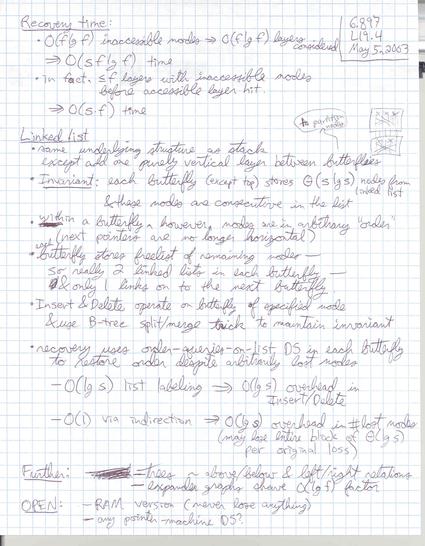 Recovery time:
6.897
L19.4
May 5, 2003
• O(f lg f) inaccessible nodes ⇒ O(f lg f) layers considered
⇒ O(s f lg f) time
• in fact, ≤ f layers with inaccessible nodes
before accessible layer hit.
⇒ O(s·f) time
Linked list
• same underlying structure as stack
except add one purely vertical layer between butterflies
• Invariant: each butterfly (except top) stores Θ(s lg s) nodes from linked list
& these nodes are consecutive in the list
• within a butterfly, however, nodes are in arbitrary "order"
(next pointers are no longer horizontal)
• butterfly stores freelist of remaining nodes —
so really 2 linked lists in each butterfly —
& only 1 links on to the next butterfly
• Insert & Delete operate on butterfly of specified node
& use B-tree split/merge trick to maintain invariant
• recovery uses order-queries-on-list DS in each butterfly
to restore order despite arbitrarily lost nodes
– O(lg s) list labeling ⇒ O(lg s) overhead in
Insert/Delete
– O(1) via indirection ⇒ O(lg s) overhead in # lost nodes
(may lose entire block of Θ(lg s)
per original loss)
Further: – trees ~ above/below & left/right relations
– expander graphs shave O(lg f) factor
OPEN: – RAM version (never lose anything)
– any pointer-machine DS?